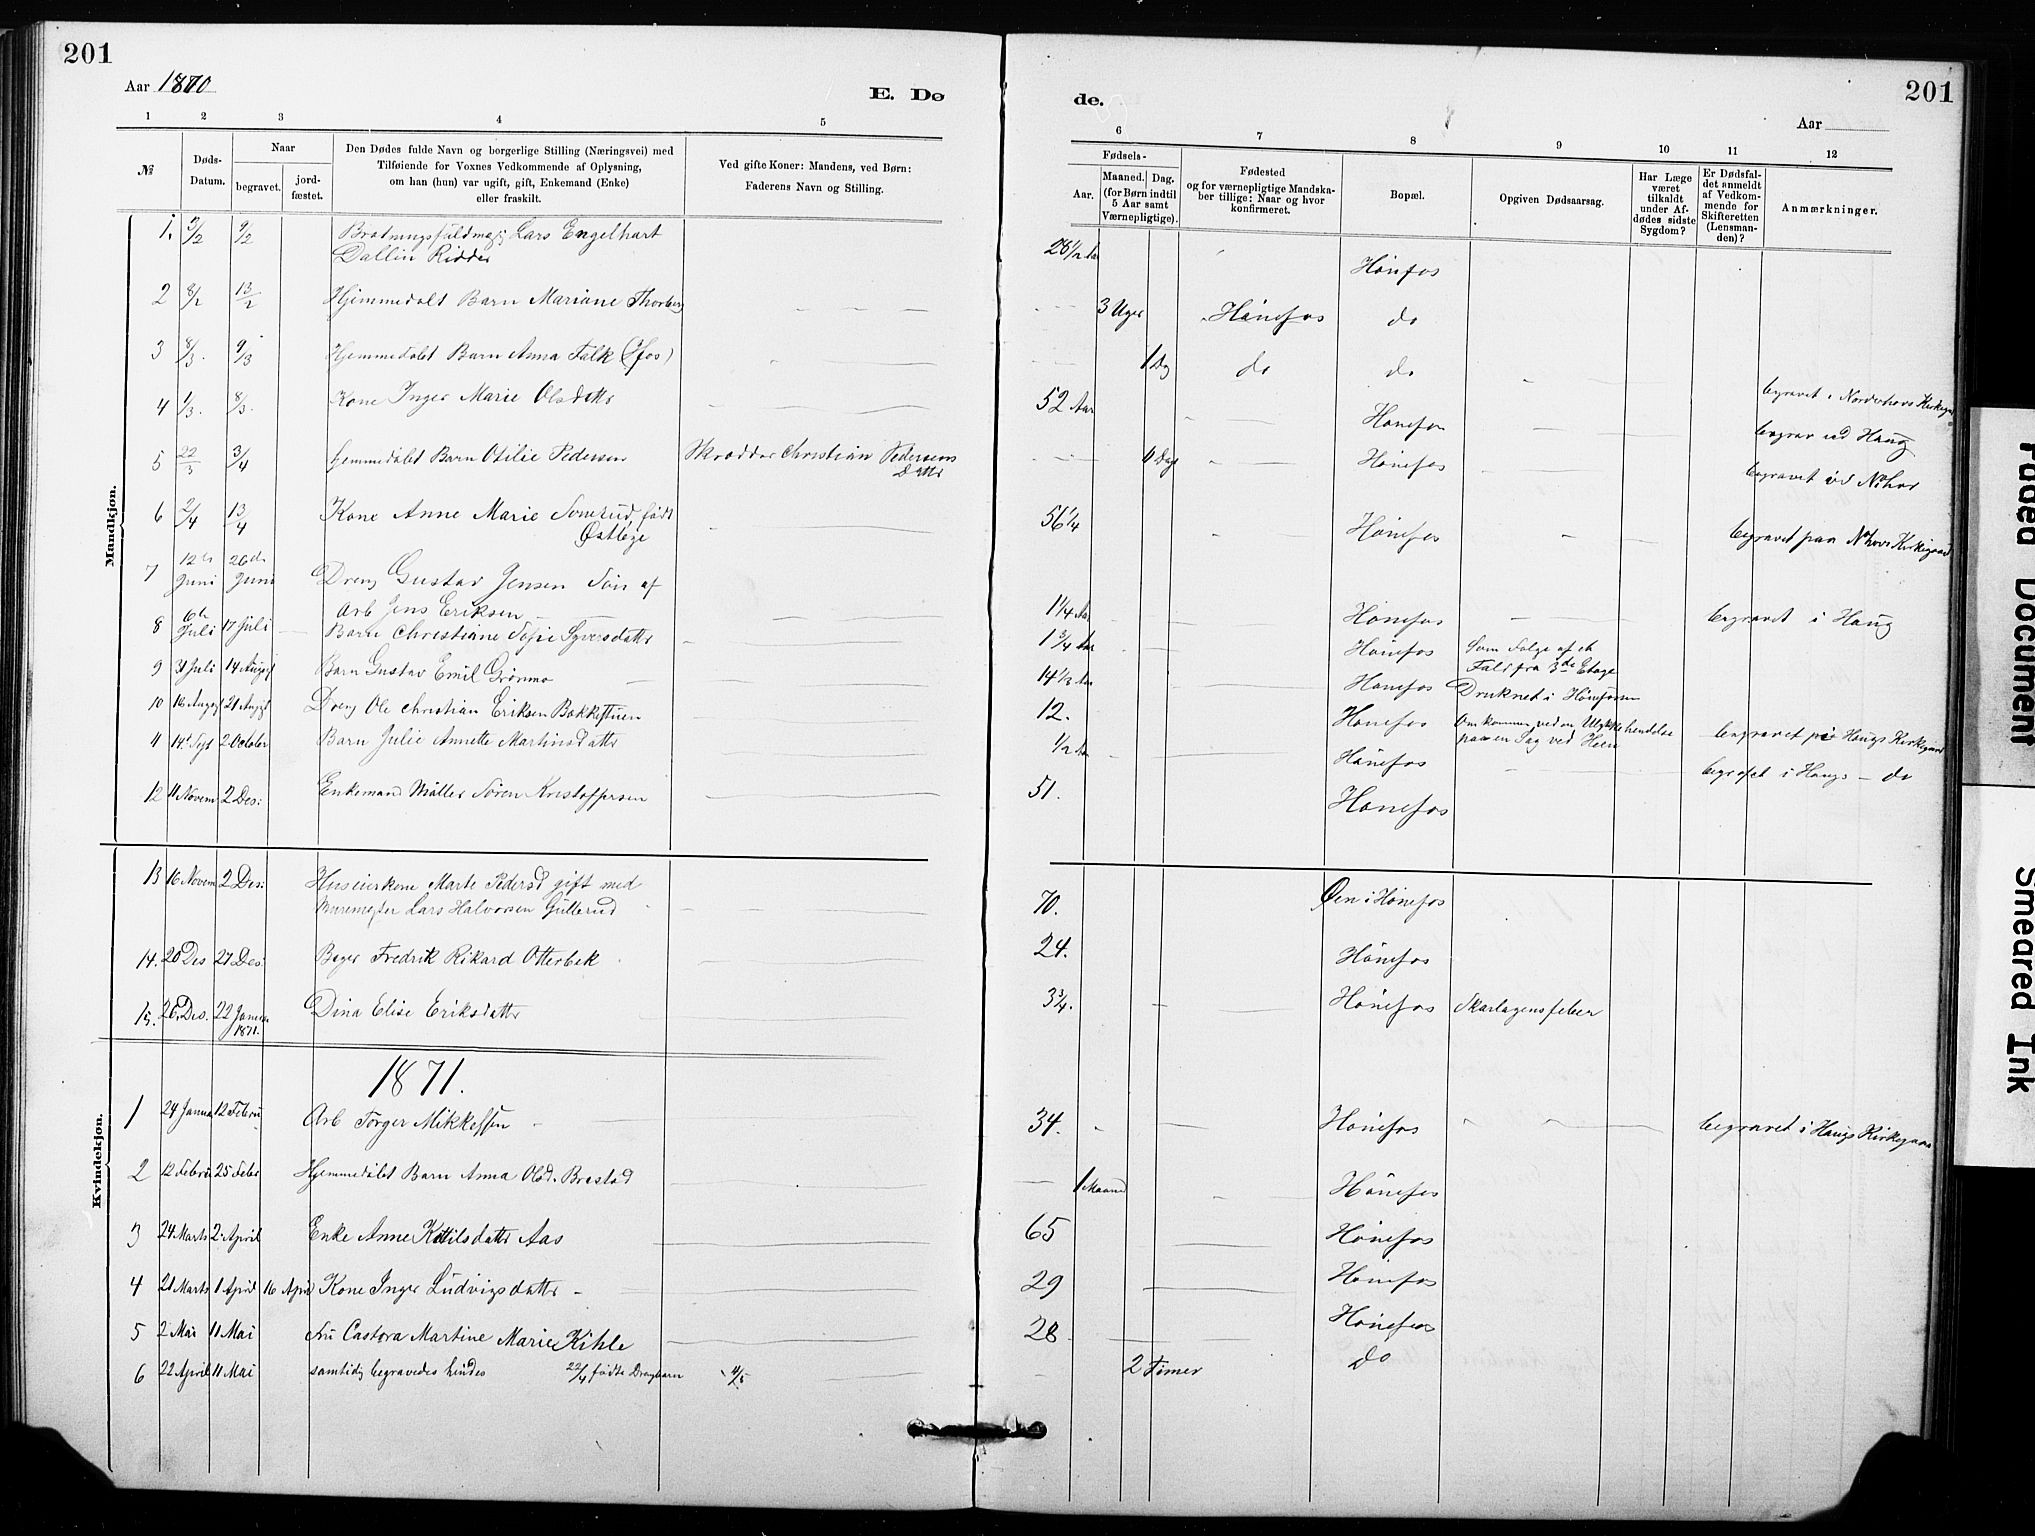 201
201
Aar 1870
E. Dø
de.
Aar
1 2 3 4 5
6 7 8 9 10 11 12
№
Døds-
Datum.
Naar
begravet.
jord-
fæstet.
Den Dødes fulde Navn og borgerlige Stilling (Næringsvei) med
Tilføiende for Voxnes Vedkommende af Oplysning,
om han (hun) var ugift, gift, Enkemand (Enke)
eller fraskilt.
Ved gifte Koner: Mandens, ved Børn:
Faderens Navn og Stilling.
Fødsels-
Aar.
Maaned. Dag.
(for Børn indtil
5 Aar samt
Værnepligtige).
Fødested
og for værnepligtige Mandska-
ber tillige: Naar og hvor
konfirmeret.
Bopæl.
Opgiven Dødsaarsag.
Har Læge
været
tilkaldt
under Af-
dødes sidste
Sygdom?
Er Dødsfal-
det anmeldt
af Vedkom-
mende for
Skifteretten
(Lensman-
den)?
Anmærkninger.
Mandkjøn.
1. 9/2 Lars Engelhart
Dallin Ridder
28 1/2 Aar Hönefos
2 8/2 13/2 Hjemmedøbt Barn Mariane Thorberg
3 Uger Hönefos do
3 8/3. 9/3 Hjemmedøbt Barn Anna Falk (Hfos)
1 Dag do do
4 1/3. 8/3. Kone Inger Marie Olsdattr
52 Aar Hönefos begravet i Norderhovs Kirkegd
begrav ved Haug
5 22/3 3/4 hjemmedøbt Barn Otilie Pedersen Skrædder Christian Pedersens
Dattr
Dage Hönefos begravet ved Nhov
6 2/4 13/4 Kone Anne Marie Somerud, født
Østlege
56 1/4 Hönefos begravet paa Nhovs Kirkegaard
7 12te Juni 26de Juni Dreng Gustav Jensen Søn af
Arb Jens Eriksen
1 1/4 Aar Hönefos begravet i Haug
8 6te Juli 17 Juli Barn Christiane Sofie Syversdattr
1 3/4 Aar Hönefos Som Følge af et
Fald fra 3de Etage
9 31 Juli 14 August Barn Gustav Emil Grönmo
14 1/3 Aar Hönefos Druknet i Hönefossen
10 16 August 21 August Dreng Ole Christian Eriksen Bakkestuen
12. Hönefos Omkommen ved en Ulykkehendelse
paa en Sag ved Heen begravet på Haugs Kirkegaard
11 14de Sept 2 October Barn Julie Annette Martinsdattr
1/2 Aar Hönefos begravet i Haugs - do
12 11 Novem 2 Des: Enkemand Møller Sören Kristoffersen
51. Hönefos
13 16 Novem 2 Des: Huseierkone Marte Pedersd gift med
Muremester Lars Halvorsen Gullerud
70. Øen i Hönefos
14. 20 Des 27 Des: Bager Fredrik Rikard Otterbek
24. Hönefos
15. 26. Des. 22 Januar
1871. Dina Elise Eriksdattr
3 3/4. Hönefos Skarlagensfeber
1871.
Kvindekjøn.
1 24 Janua 12 Febru Arb Torger Mikkelsen
34. Hönefos begravet i Haugs Kirkegaard
2 12 Febru 25 Febr Hjemmedøbt Barn Anna Olsd. Brestad
1 Maaned Hönefos
3 24 Marts 2 April Enke Anne Kittilsdattr Aas
65 Hönefos
4 21 Marts 1 April 16 April Kone Inger Ludvigsdattr
29 Hönefos
5 2 Mai 11 Mai Fru Castora Martine Marie Kihle
28 Hönefos
6 22 April 11 Mai samtidig begravedes hendes 22/4 fødte Drengbarn 4/5
2 Timer do
Faded Document
Smeared Ink